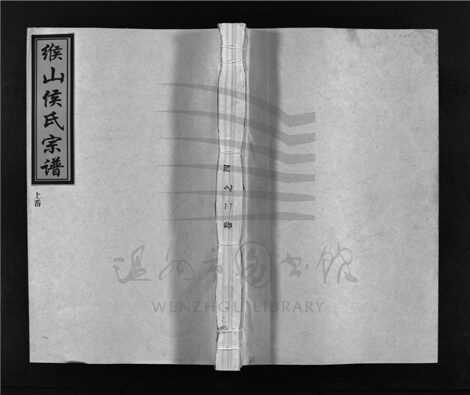 缑山侯氏宗谱
上岙
卷二之四
温州市图书馆
WENZHOU LIBRARY